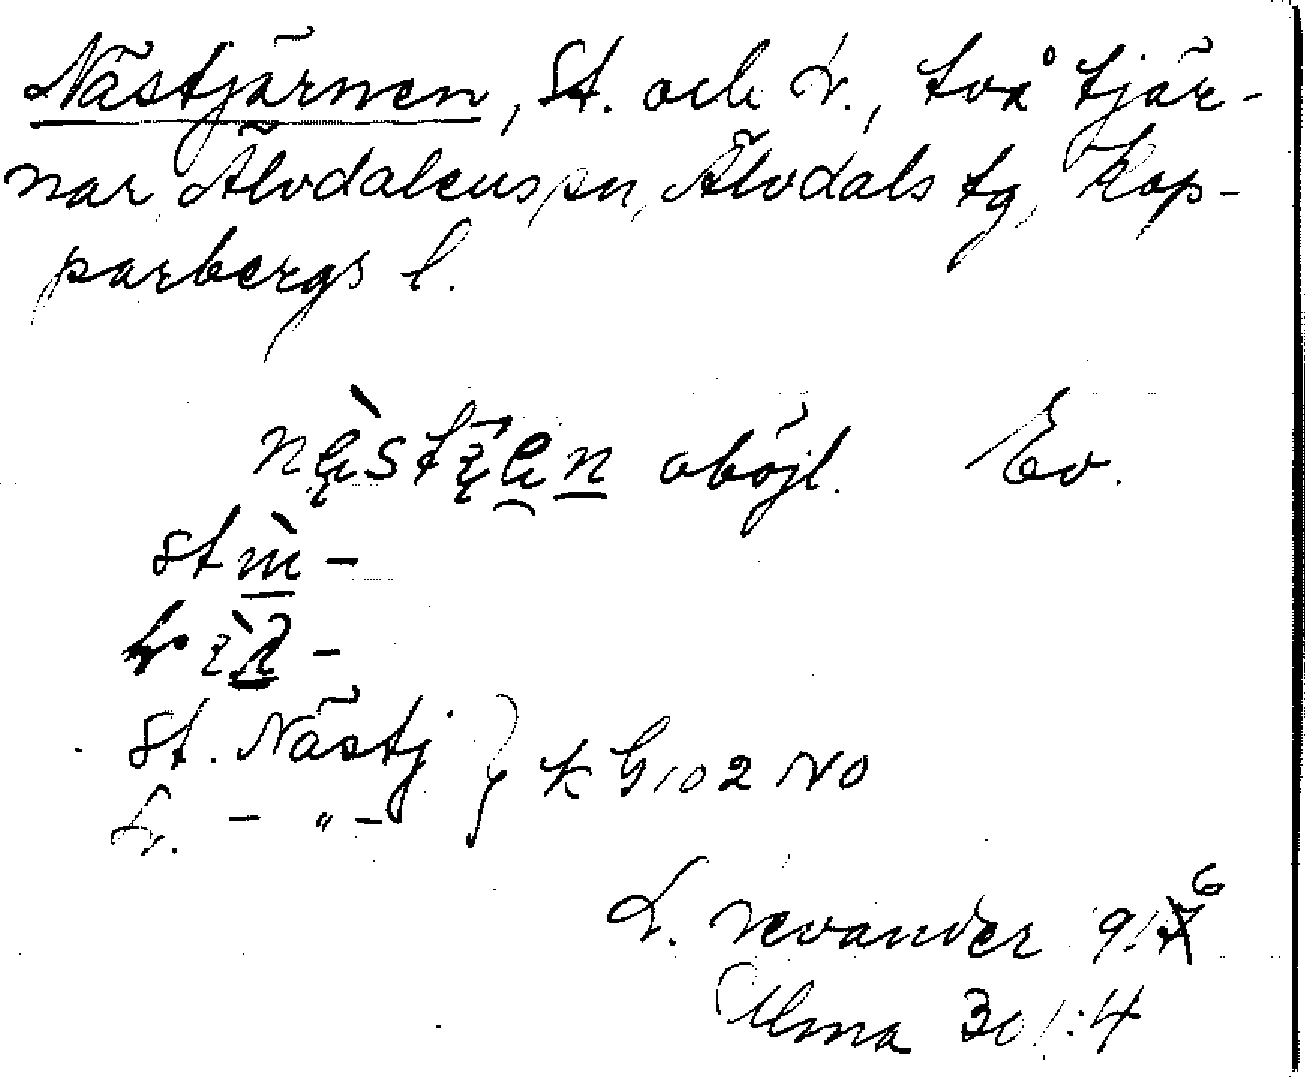 Nästjärnen, St. och L., två tjär-
nar, Älvdalens sn, Älvdals tg, Kop-
parbergs l.
oböjl. Ev.
St. Nästj
L. - " - } k G 102 NO
L. Levander 9/6
Ulma 301:4